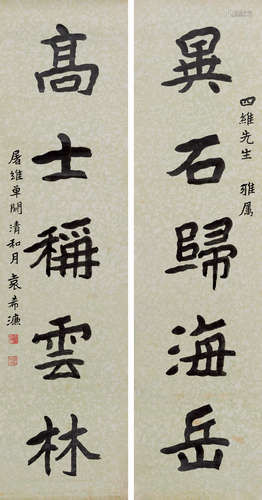 四維先生 雅屬
異石歸海岳
高士稱雲林
屠維單閼清和月 袁希濂